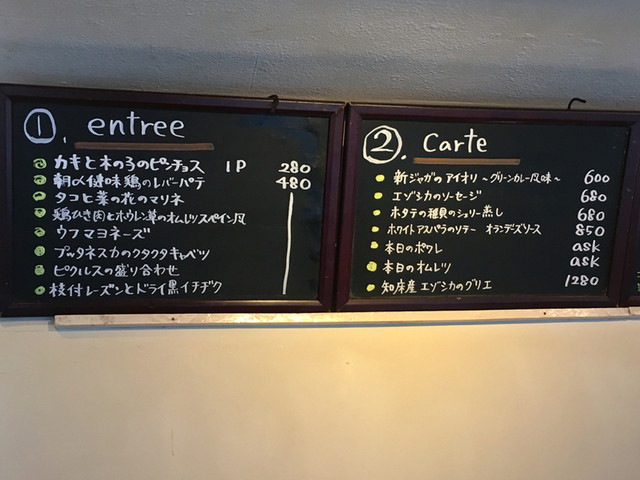 ①. entree
カキと木の子のピンチョス 1P 280
朝〆健味鶏のレバーパテ 480
タコと菜の花のマリネ
鶏ひき肉とホウレン草のオムレツスペイン風
ウフマヨネーズ
プッタネスカのクタクタキャベツ
ピクルスの盛り合わせ
枝付レーズンとドライ黒イチヂク
②. Carte
新ジャガのアイオリ ～グリーンカレー風味～ 600
エゾシカのソーセージ 680
ホタテの稚貝のシェリー蒸し 680
ホワイトアスパラのソテー オランデーズソース 850
本日のポワレ ask
本日のオムレツ ask
知床産エゾシカのグリエ 1280